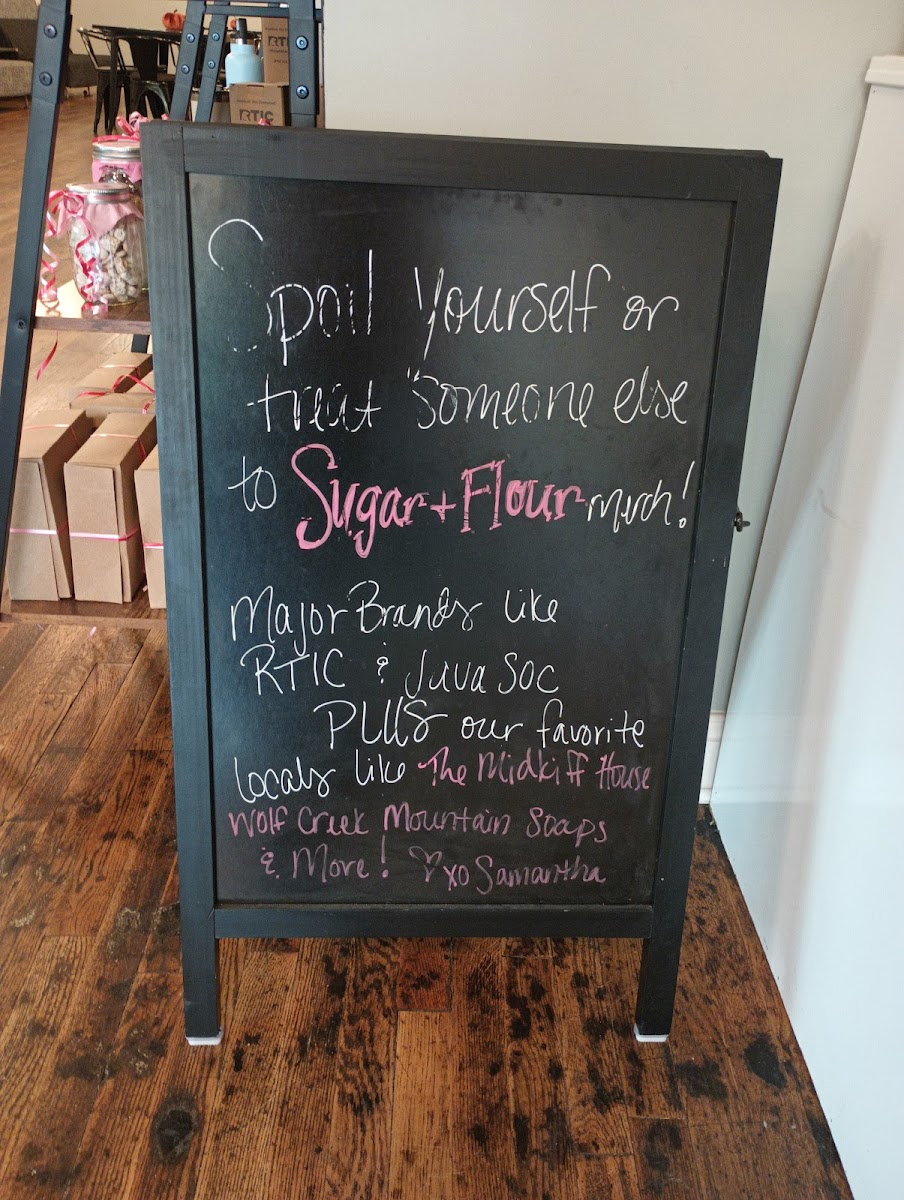 RTIC
RTIC
Spoil Yourself or
treat Someone else
to Sugar + Flour merch!
Major Brands like
RTIC & Java Soc
PLUS our favorite
locals like The Midkiff House
Wolf Creek Mountain Soaps
& More! ♡ xo Samantha